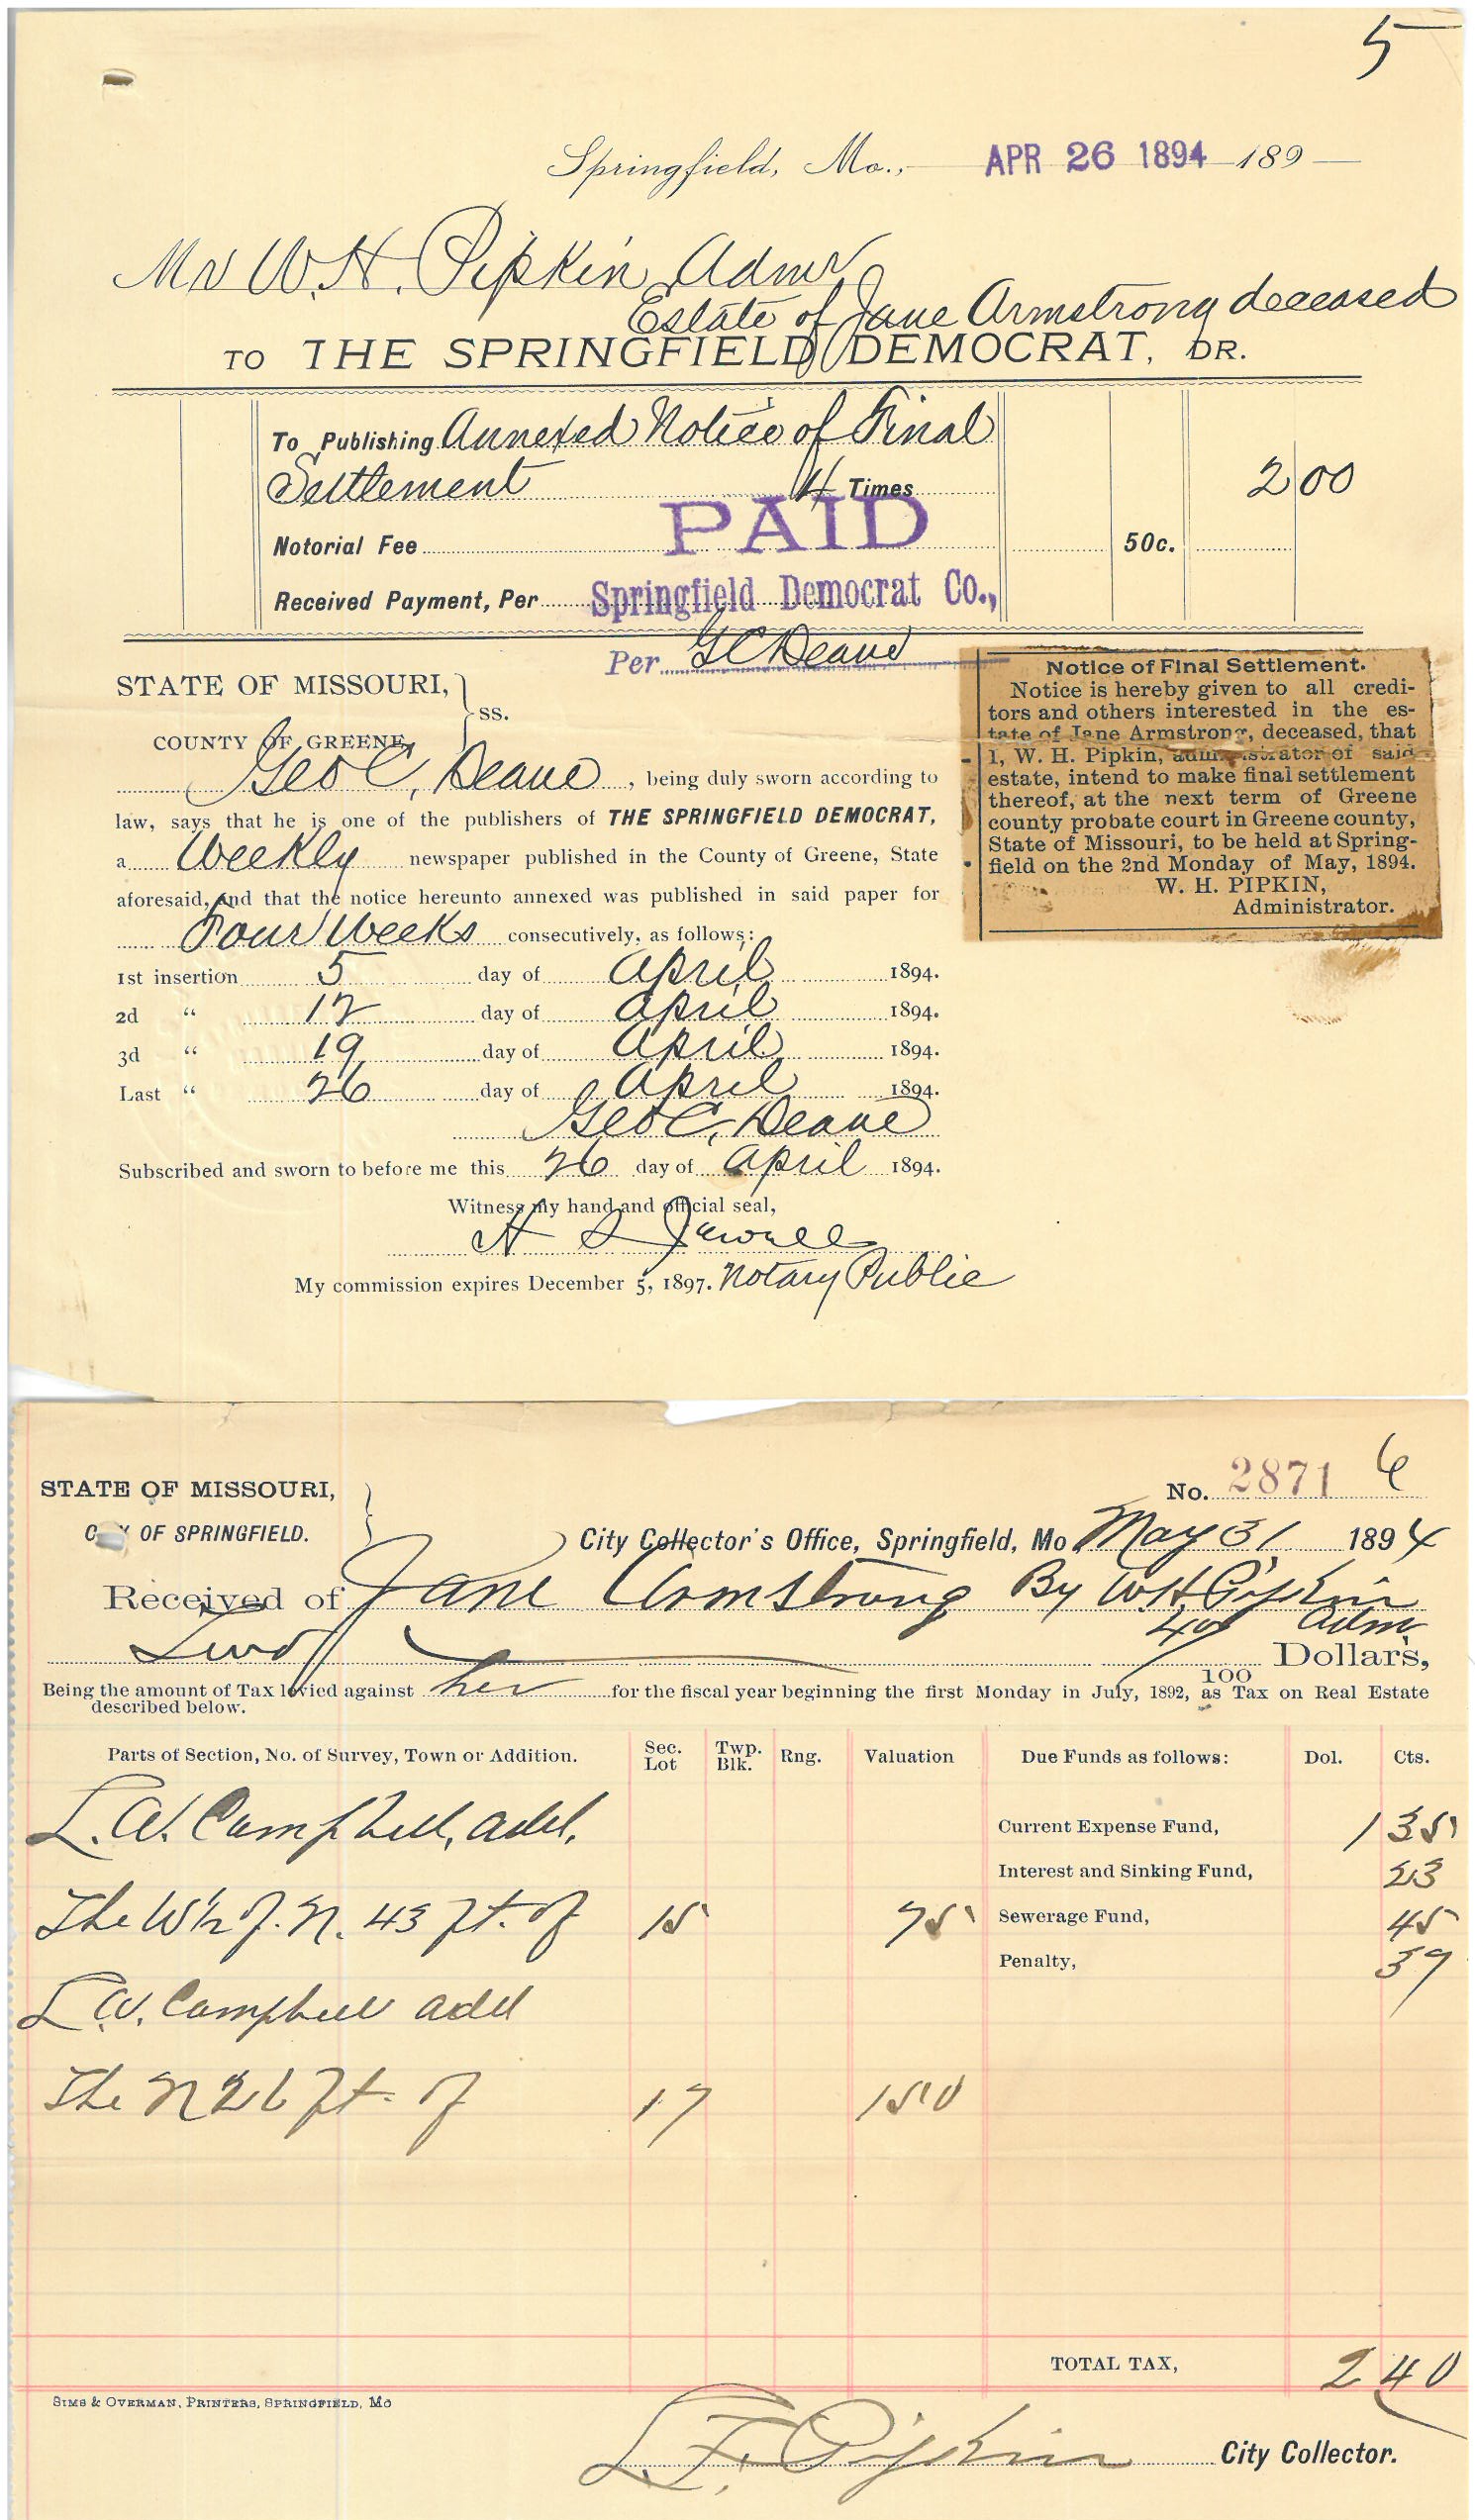 5
Springfield, Mo., APR 26 1894 189
Mr W. H. Pipkin Admr
Estate of Jane Armstrong deceased
TO THE SPRINGFIELD DEMOCRAT, DR.
To Publishing Annexed Notice of Final
Settlement 4 Times 2 00
PAID
Notorial Fee 50c.
Received Payment, Per Springfield Democrat Co.,
Per G C Deane
STATE OF MISSOURI, } ss.
COUNTY OF GREENE,
Geo C. Deane, being duly sworn according to
law, says that he is one of the publishers of THE SPRINGFIELD DEMOCRAT,
a Weekly newspaper published in the County of Greene, State
aforesaid, and that the notice hereunto annexed was published in said paper for
Four Weeks consecutively, as follows:
1st insertion 5 day of April 1894.
2d " 12 day of April 1894.
3d " 19 day of April 1894.
Last " 26 day of April 1894.
Geo C. Deane
Subscribed and sworn to before me this 26 day of April 1894.
Witness my hand and official seal,
H
My commission expires December 5, 1897. Notary Public
Notice of Final Settlement.
Notice is hereby given to all credi-
tors and others interested in the es-
tate of Jane Armstrong, deceased, that
I, W. H. Pipkin, administrator of said
estate, intend to make final settlement
thereof, at the next term of Greene
county probate court in Greene county,
State of Missouri, to be held at Spring-
field on the 2nd Monday of May, 1894.
W. H. PIPKIN,
Administrator.
STATE OF MISSOURI, }
CITY OF SPRINGFIELD.
No. 2871 6
City Collector's Office, Springfield, Mo May 31 1894
Received of Jane Armstrong By W.H. Pipkin
Adm.
Two 40/100 Dollars,
Being the amount of Tax levied against her for the fiscal year beginning the first Monday in July, 1892, as Tax on Real Estate
described below.
Parts of Section, No. of Survey, Town or Addition. Sec. Lot Twp. Blk. Rng. Valuation Due Funds as follows: Dol. Cts.
L. A. Campbell, add. Current Expense Fund, 1 35
Interest and Sinking Fund, 23
The W½ of N. 43 ft. of 15 75 Sewerage Fund, 45
Penalty, 37
L A. Campbell add
The N 26 ft. of 17 150
TOTAL TAX, 2 40
SIMS & OVERMAN, PRINTERS, SPRINGFIELD, MO
L. F. Pipkin City Collector.